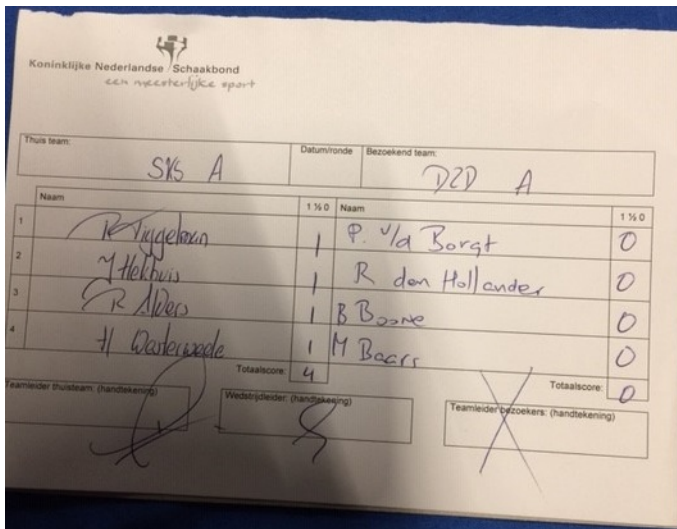 Koninklijke Nederlandse Schaakbond
een meesterlijke sport
Thuis team: Datum/ronde Bezoekend team:
SKS A D2D A
Naam 1 ½ 0 Naam 1 ½ 0
1 R Tiggelman 1 P. v/d Borgt 0
2 J Hekhuis 1 R den Hollander 0
3 R Alders 1 B Boone 0
4 H Westerweele 1 M Baars 0
Totaalscore: 4 Totaalscore: 0
Teamleider thuisteam: (handtekening) Wedstrijdleider: (handtekening) Teamleider bezoekers: (handtekening)